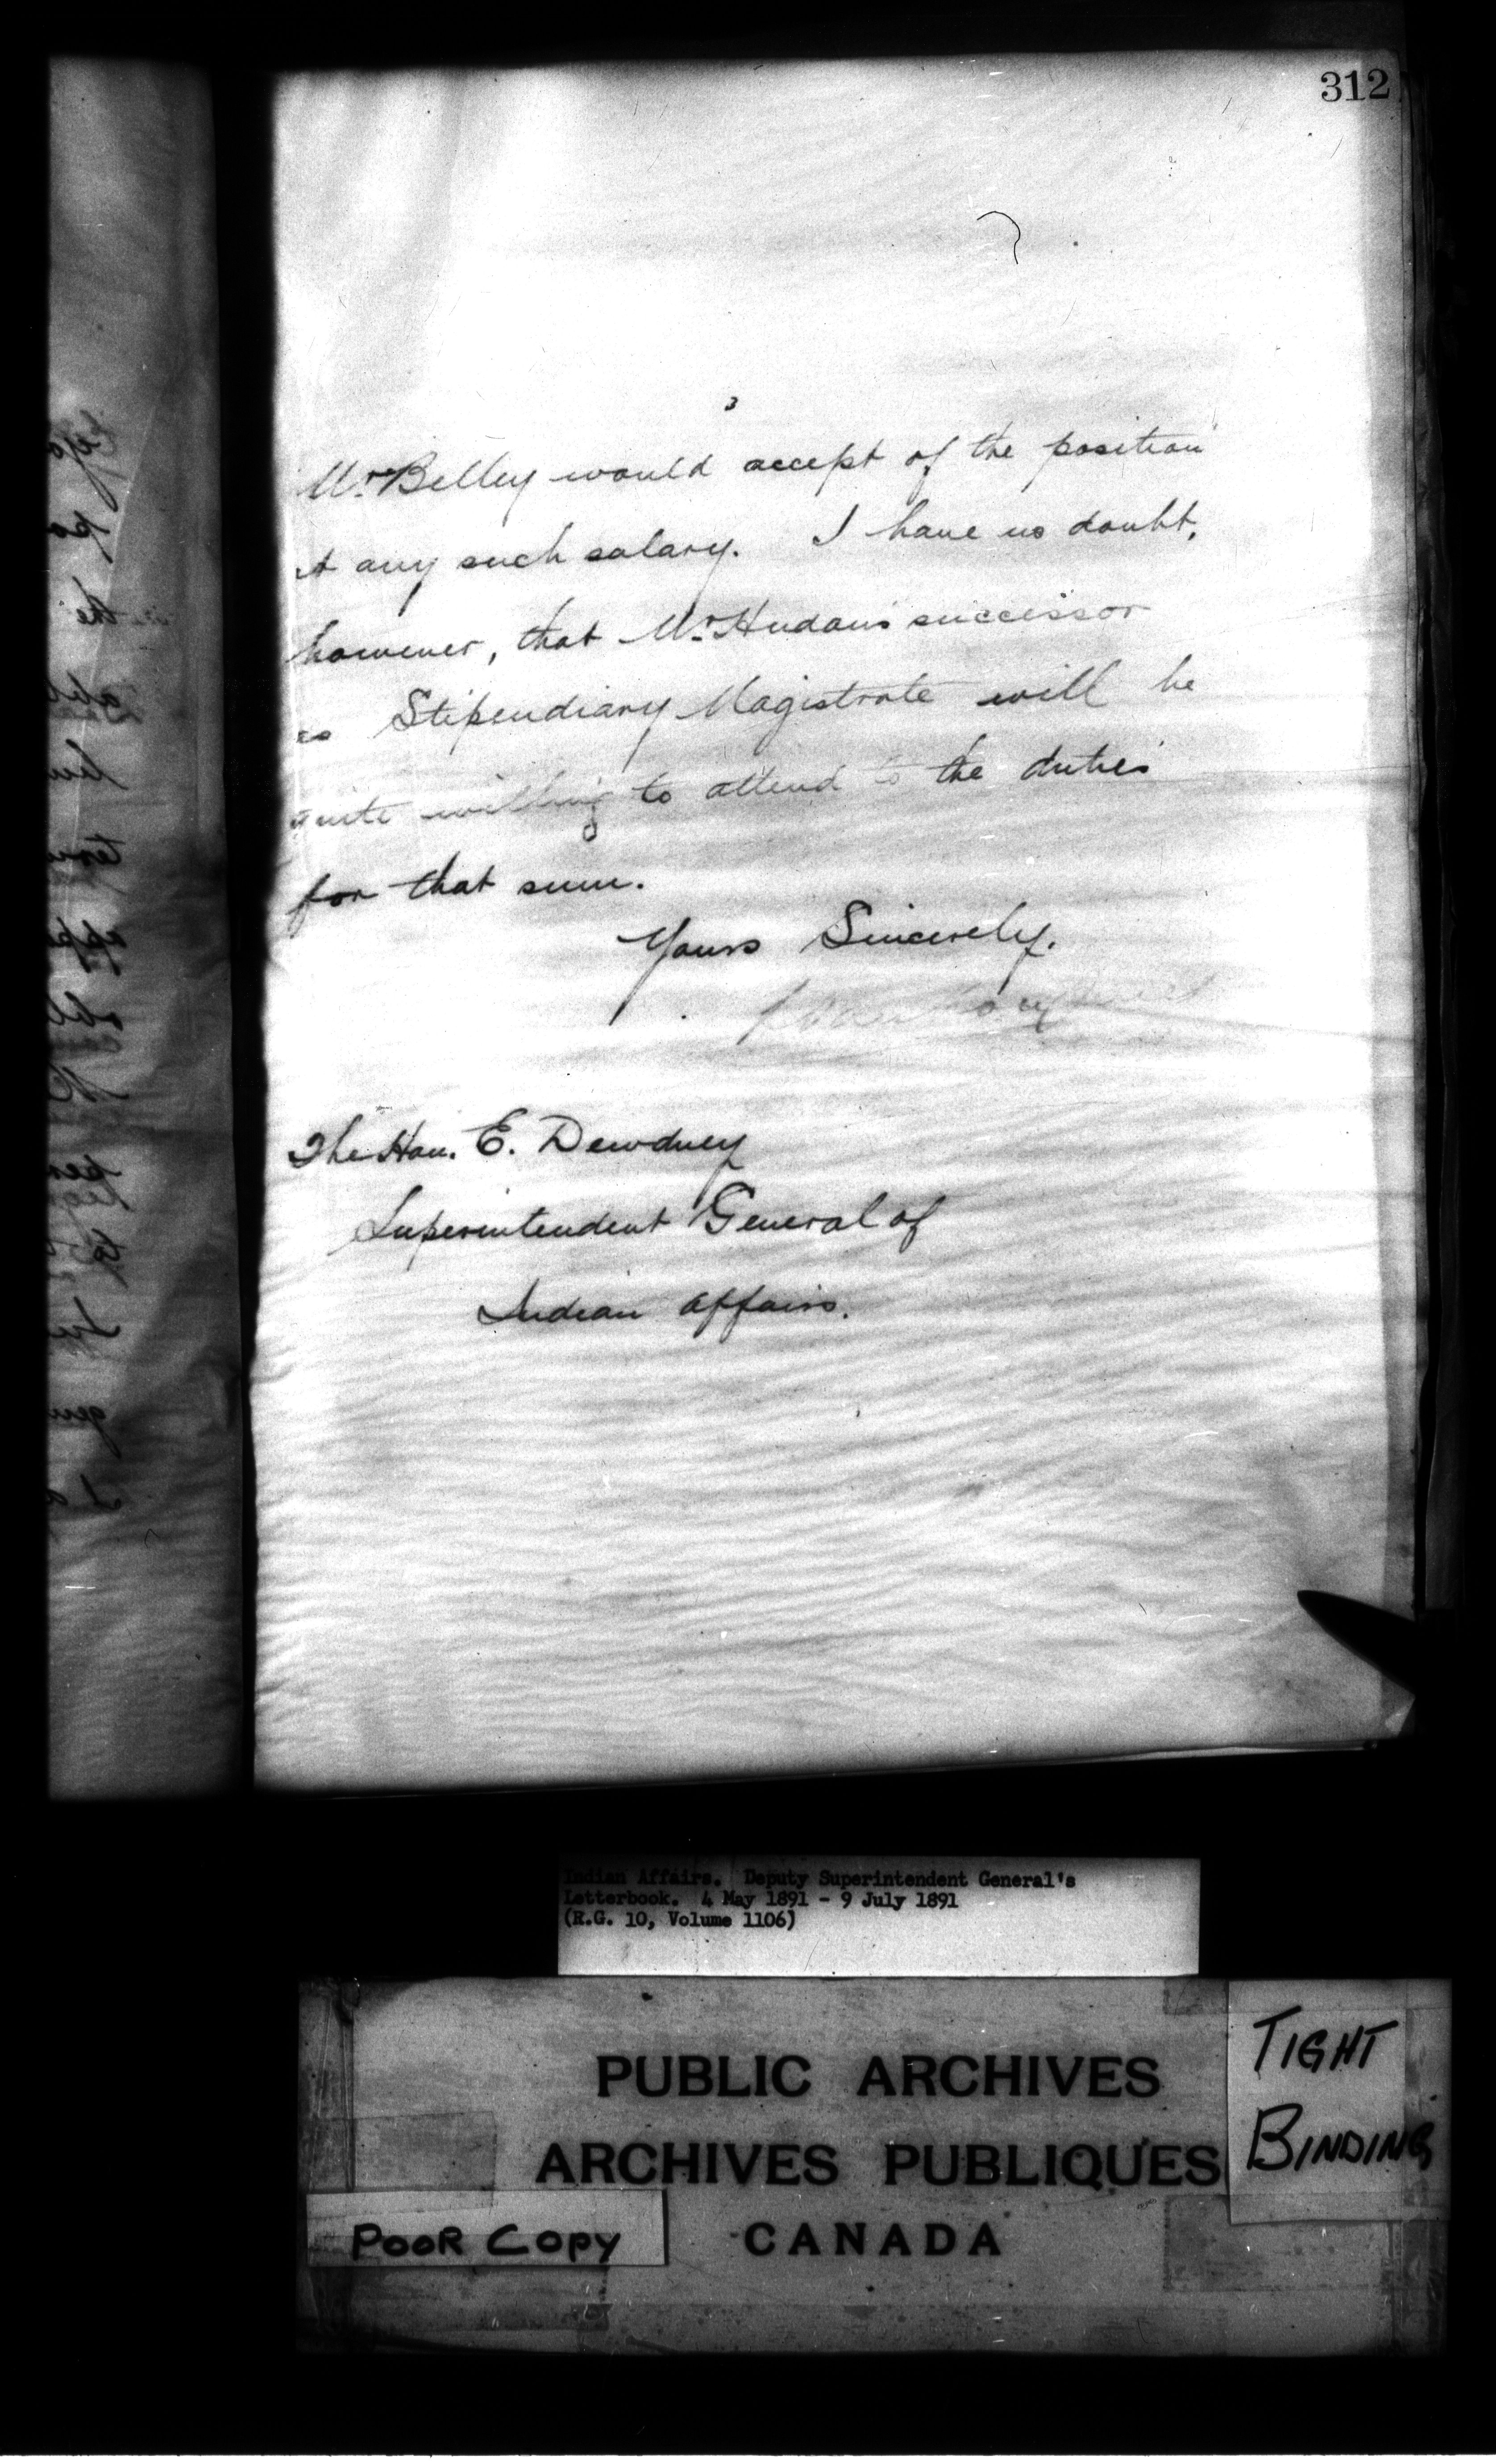 312
3
Mr Belley would accept of the position
at any such salary. I have no doubt,
however, that Mr Hudon's successor
as Stipendiary Magistrate will be
quite willing to attend to the duties
for that sum.
Yours Sincerely.
The Hon. E. Dewdney
Superintendent General of
Indian Affairs.
Indian Affairs. Deputy Superintendent General's
Letterbook. 4 May 1891 - 9 July 1891
(R.G. 10, Volume 1106)
PUBLIC ARCHIVES
ARCHIVES PUBLIQUES
CANADA
TIGHT
BINDING
POOR COPY